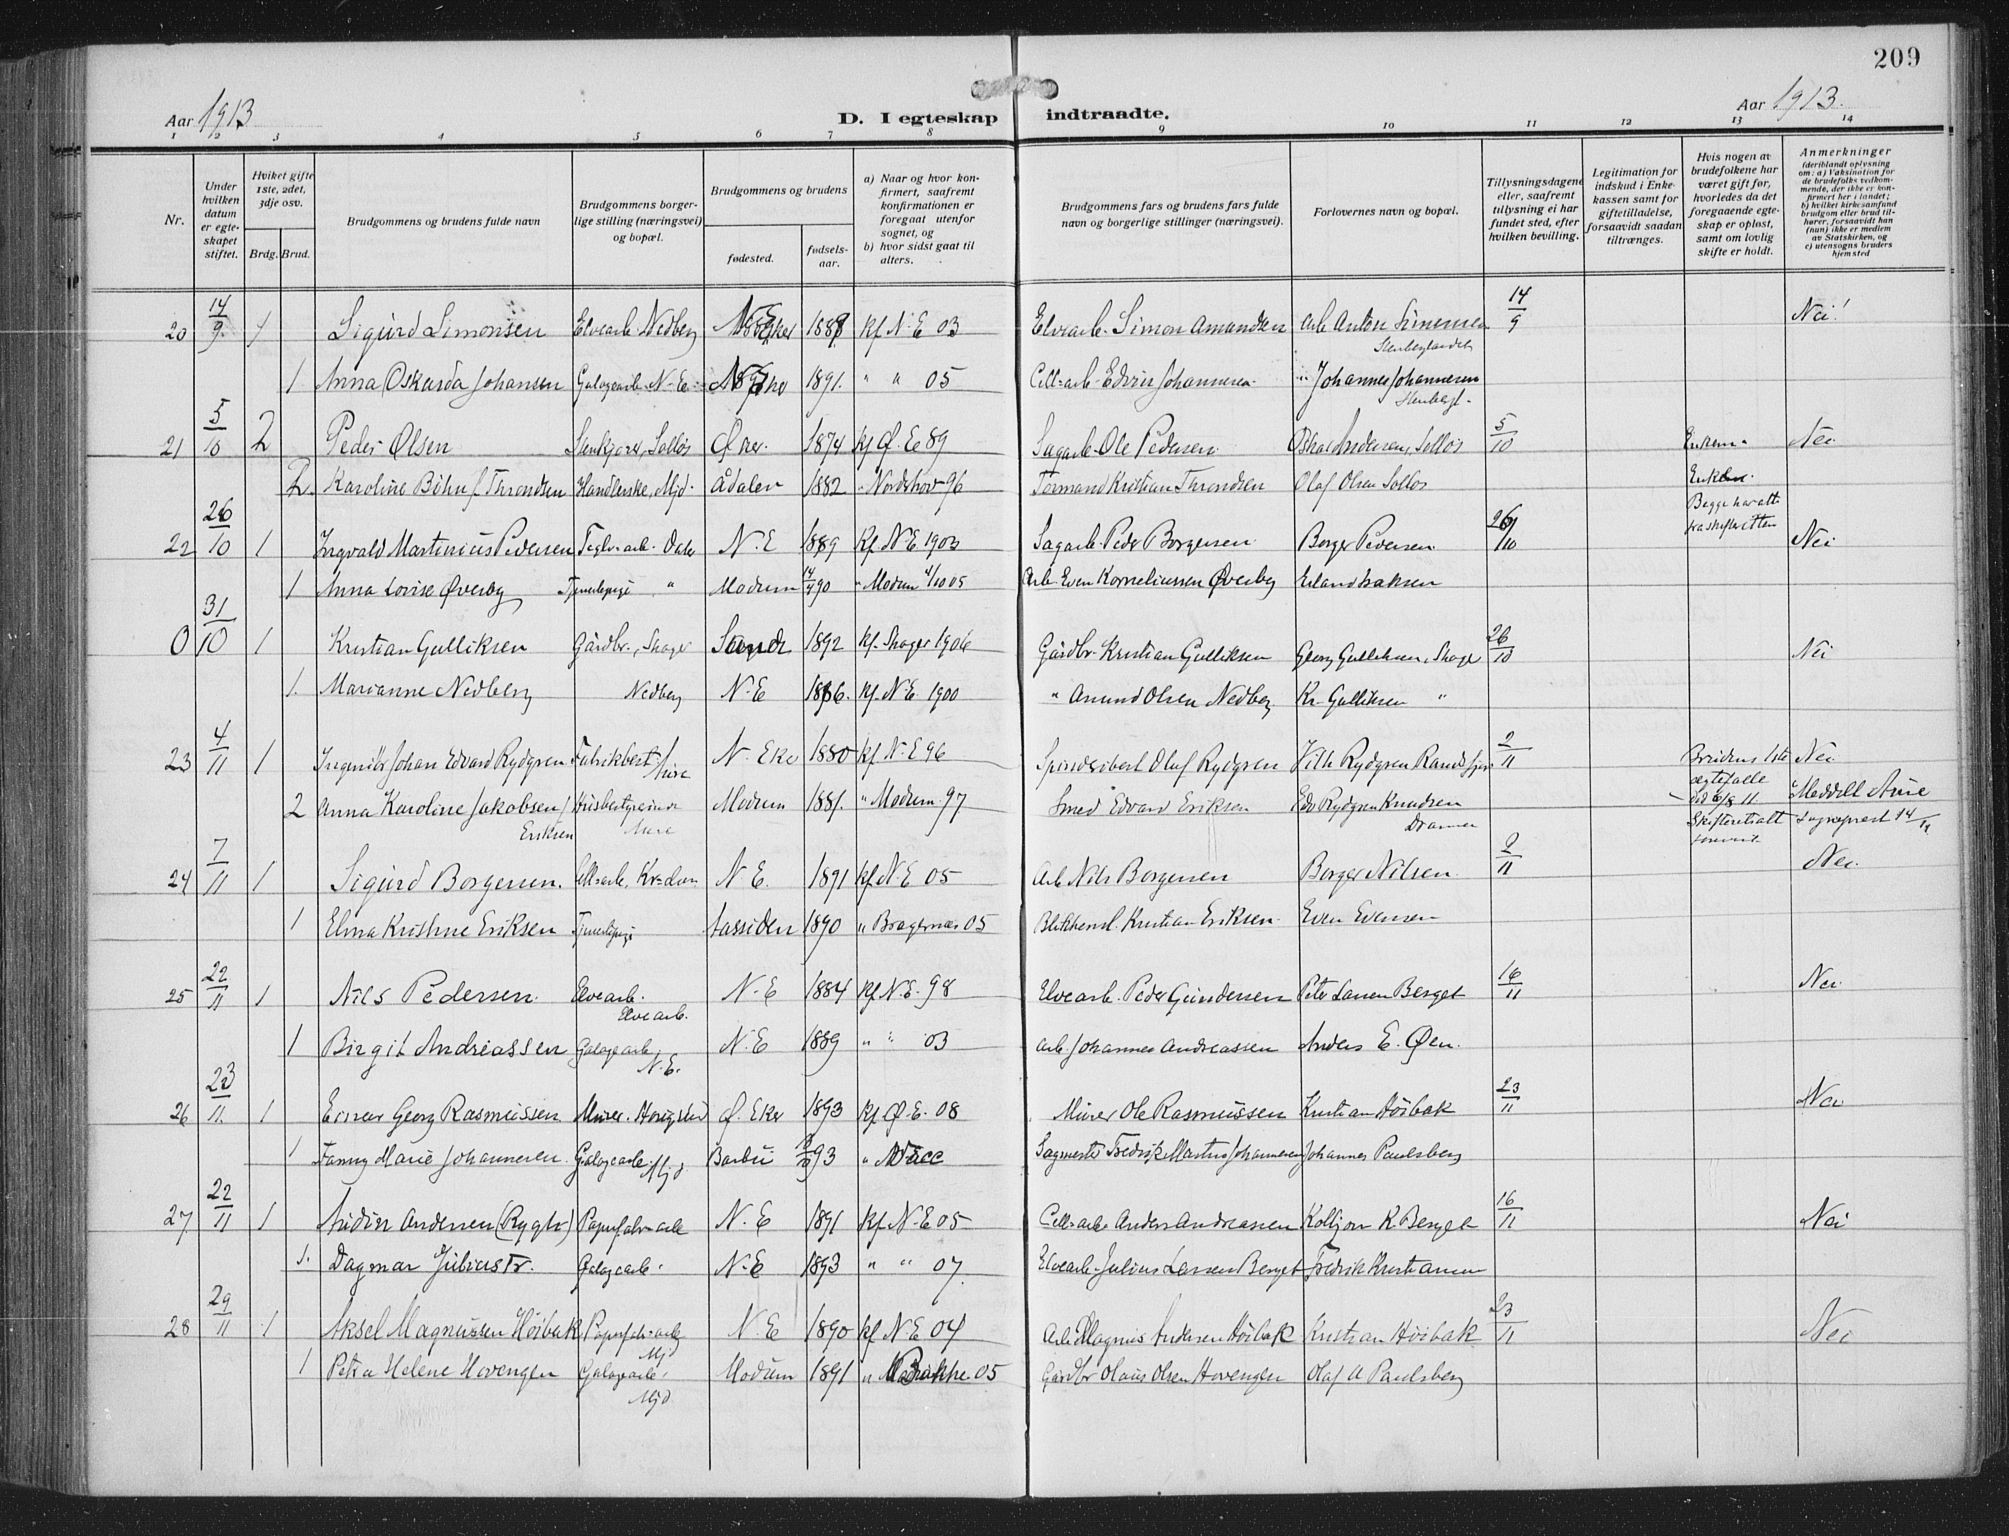 209
Aar 1913
D. I egteskap indtraadte.
Aar 1913.
1 2 3 4 5 6 7 8 9 10 11 12 13 14
Nr.
Under hvilken datum er egteskapet stiftet.
Hvilket gifte 1ste, 2det, 3dje osv.
Brdg. Brud.
Brudgommens og brudens fulde navn
Brudgommens borgerlige stilling (næringsvei) og bopæl.
Brudgommens og brudens
fødested.
fødselsaar.
a) Naar og hvor konfirmert, saafremt konfirmationen er foregaat utenfor sognet, og
b) hvor sidst gaat til alters.
Brudgommens fars og brudens fars fulde navn og borgerlige stillinger (næringsvei).
Forlovernes navn og bopæl.
Tillysningsdagene eller, saafremt tillysning ei har fundet sted, efter hvilken bevilling.
Legitimation for indskud i Enkekassen samt for giftetilladelse, forsaavidt saadan tiltrænges.
Hvis nogen av brudefolkene har været gift før, hvorledes da det foregaaende egteskap er opløst, samt om lovlig skifte er holdt.
Anmerkninger (deriblandt oplysning om: a) Vaksination for de brudefolks vedkommende, der ikke er konfirmert her i landet; b) hvilket kirkesamfund brudgom eller brud tilhører, forsaavidt han (hun) ikke er medlem av Statskirken, og c) utensogns bruders hjemsted
20 14/9 1 Sigurd Simonsen Elvearb. Nedberg 188 kf N-E 03 Elvearb. Simon Amundsen Arb Anton Simensen 14/9 Nei!
1 Anna Oskarda Johansen Galogearb. N-E. 1891. " " 05 Cell-arb. Edvin Johannesen " Johannes Johannesen
21 5/10 2 Peder Olsen Ø ker. 1874 kf Ø. E 89 Sagarb. Ole Pedersen 5/10 Enkem. Nei
2. Karoline Böhn f Throndsen Handlerske, Mjd. Ådalen 1882 " Nordshov 96 Tormand Kristian Throndsen Olaf Olsen Solløs
Begge har att. fra skifteretten
22 26/10 1 Ingvald Martinius Pedersen N. E 1889 Kf N-E 1903 Sagarb. Peder Borgersen Borger Pedersen 26/10 Nei
1 Anna Lovise Øverby Tjenestepige " Modum 90 " Modum 05 Arb. Even Korneliussen Øverby Erland Isaksen
0 31/10 1 Kristian Gulliksen Gårdbr., Skoger 1892 kf. Skoger 1906 Gårdbr. Kristian Gulliksen Georg Gulliksen, Skoger 26/10 Nei
1. Marianne Nedberg Nedberg N-E 1886. kf. N-E 1900 " Amund Olsen Nedberg Kr. Gulliksen "
23 4/11 1 Ingeniör Johan Edvard Rydgren N- Eker 1880 kf N-E 96 Olaf Rydgren Vilh Rydgren 2/11 Brudens 1ste ægtefælle död 6/8 11 Nei
2 Anna Karoline Jakobsen f Eriksen Husbestyrerinde Modum 1881. " Modum 97 Smed Edvard Eriksen Edv Rydgren Knudsen Drammen Skifteretsatt Sogneprest 14/11
24 7/11 1 Sigurd Borgersen. N E. 1891 kf N-E 05 Arb Nils Borgersen Borger Nilsen. 2/11 Nei.
1 Elma Kristine Eriksen Tjenestepige Aassiden 1890 " Bragernæs 05 Kristian Eriksen Even Evensen
25 22/11 1 Nils Pedersen. Elvearb. Elvearb. N-E 1884 kf N-E. 98 Elvearb. Peder Gundersen Peter Larsen Berget 16/11 Nei
1 Birgit Andreassen Galogearb. N.E. N.E 1889 " " 03 Arb. Johannes Andreassen Anders E. Øen.
26 23/11. 1 Einar Georg Rasmussen Murer. Ø. Eker 1893 kf Ø. E. 08 Murer Ole Rasmussen Kristian Höibak 23/11 Nei
1 Fanny Marie Johannesen. Galogearb. Mjd Barbu 93 Sagmester Fredrik Martin Johannesen Johannes Paulsberg
27 22/11 1 Andersen (Rygh) Papirfabr=arb N. E 1891 kf N-E 05 Cell-arb. Anders Andreassen Kolbjørn K Berget 16/11 Nei
1. Dagmar Juliustr. Galogearb. N-E 1893 " " 07. Elvearb. Julius Larsen Berget Fredrik Kristiansen
28 29/11 1 Aksel Magnussen Höibak Papirfabr=arb Mj N. E 1890 kf N E 04 Arb. Magnus Andersen Höibak Kristian Höibak 23/11 Nei
1 Petra Helene Hovengen Galogearb. Mjd Modum 1891 05 Gårdbr Olaus Olsen Hovengen Olaf A Paulsberg